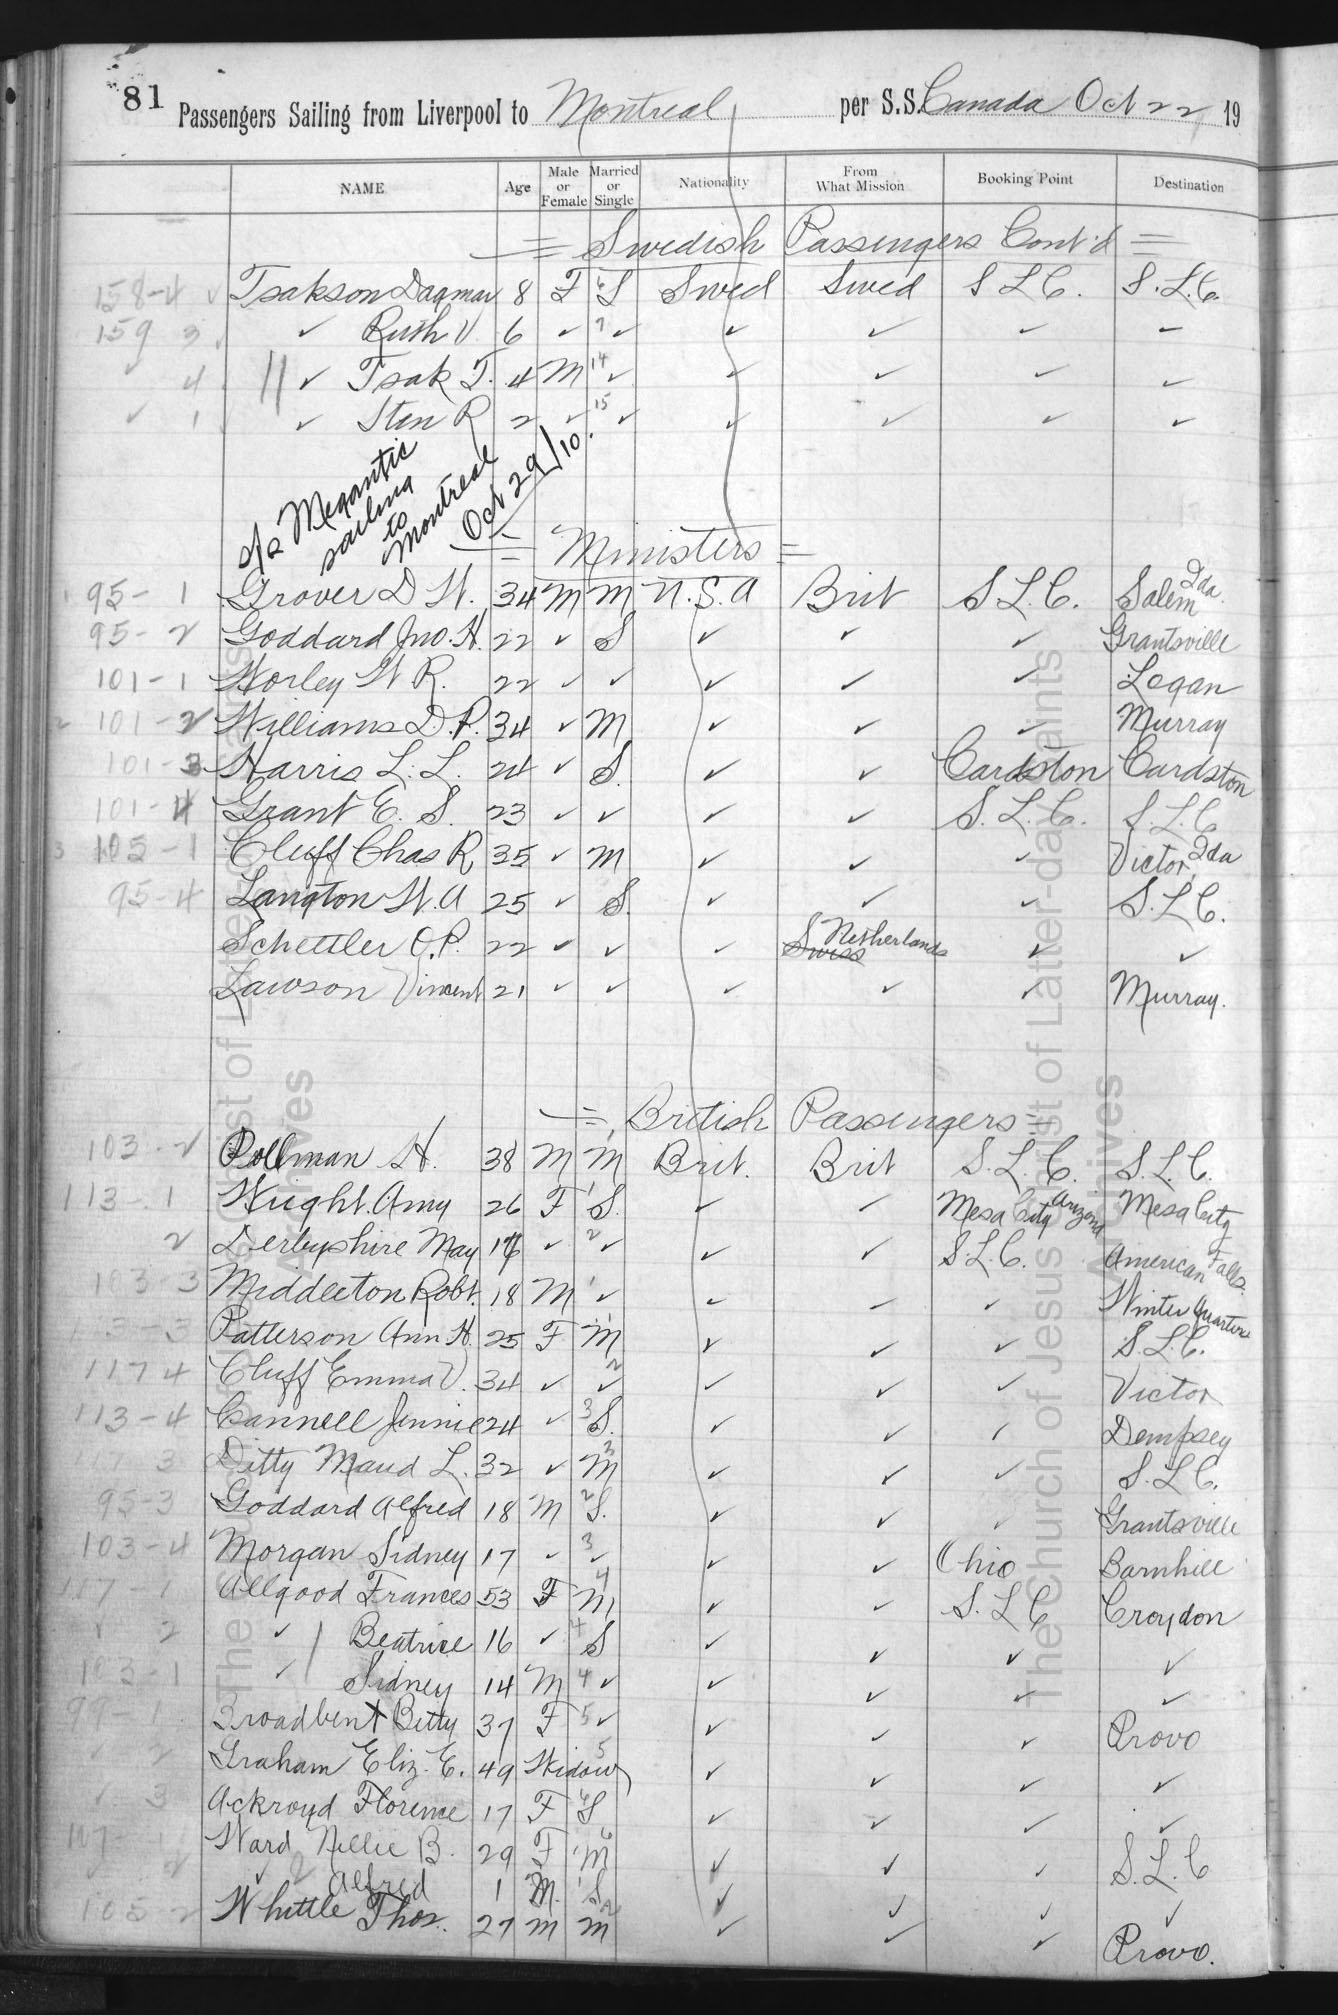 81 Passengers Sailing from Liverpool to Montreal per S.S. Canada Oct 22 19
NAME Age Male or Female Married or Single Nationality From What Mission Booking Point Destination
= Swedish Passengers Cont'd =
158-4 ✓ Isakson Dagmar 8 F 6 S Swed Swed S L C. S. L. C.
159 3 ✓ Ruth V. 6 ✓ 7 ✓ ✓ ✓ ✓ ✓
✓ 4 // ✓ Isak T. 4 M 14 ✓ ✓ ✓ ✓ ✓
✓ 1 ✓ Sten R 2 ✓ 15 ✓ ✓ ✓ ✓ ✓
s/s Megantic
sailing
to
Montreal
Oct 29/10.
= Ministers =
95- 1 Grover D W. 34 M M U.S.A Brit S L C. Salem Ida.
95- 2 Goddard Jno. H. 22 ✓ S ✓ ✓ ✓ Grantsville
101-1 Worley W R. 22 ✓ ✓ ✓ ✓ ✓ Logan
2 101-2 Williams D.P. 34 ✓ M ✓ ✓ ✓ Murray
101-3 Harris L. L. 24 ✓ S. ✓ ✓ Cardston Cardston
101-4 Grant E. S. 23 ✓ ✓ ✓ ✓ S. L. C. S. L. C
3 105-1 Cluff Chas R 35 ✓ M ✓ ✓ ✓ Victor, Ida
95-4 Langton W. A 25 ✓ S. ✓ ✓ ✓ S. L C.
Schettler O.P. 22 ✓ ✓ ✓ Swiss Netherlands ✓ ✓
Lawson Vincent 21 ✓ ✓ ✓ ✓ ✓ Murray.
= British Passengers =
103-2 Pollman H. 38 M 1 M Brit. Brit S. L. C. S. L. C.
113-1 Wright Amy 26 F 1 S. ✓ ✓ Mesa City Arizona Mesa City
2 Derbyshire May ✓ 2 ✓ ✓ ✓ S L. C. American Falls.
103-3 Middleton Robt. 18 M 1 ✓ ✓ ✓ ✓ Winter Quarters
113-3 Patterson Ann H. 25 F 1 M ✓ ✓ ✓ S. L. C.
117 4 Cluff Emma V. 34 ✓ 2 ✓ ✓ ✓ ✓ Victor
113-4 Cannell Jennie 24 ✓ 3 S. ✓ ✓ ✓ Dempsey
117 3 Ditty Maud L. 32 ✓ 3 M ✓ ✓ ✓ S. L C.
95-3 Goddard Alfred 18 M 2 S. ✓ ✓ ✓ Grantsville
103-4 Morgan Sidney 17 ✓ 3 ✓ ✓ ✓ Ohio Barnhill
117-1 Allgood Frances 53 F 4 M ✓ ✓ S. L C Croydon
✓ 2 ✓ / Beatrice 16 ✓ 4 S ✓ ✓ ✓ ✓
103-1 ✓ Sidney 14 M 4 ✓ ✓ ✓ ✓ ✓
99-1 Broadbent Betty 37 F 5 ✓ ✓ ✓ ✓ Provo
✓ 2 Graham Eliz. E. 49 Widow 5 ✓ ✓ ✓ ✓
✓ 3 Ackroyd Florence 17 F 6 S ✓ ✓ ✓ ✓
107- Ward Nellie B. 29 F 6 M ✓ ✓ ✓ S. L. C
✓ 2 ✓ 2 Alfred 1 M. 1 S ✓ ✓ ✓ ✓
105-2 Whittle Thos. 27 m 2 m ✓ ✓ ✓ Provo.
The Church of Jesus Christ of Latter-day Saints
Archives
The Church of Jesus Christ of Latter-day Saints
Archives